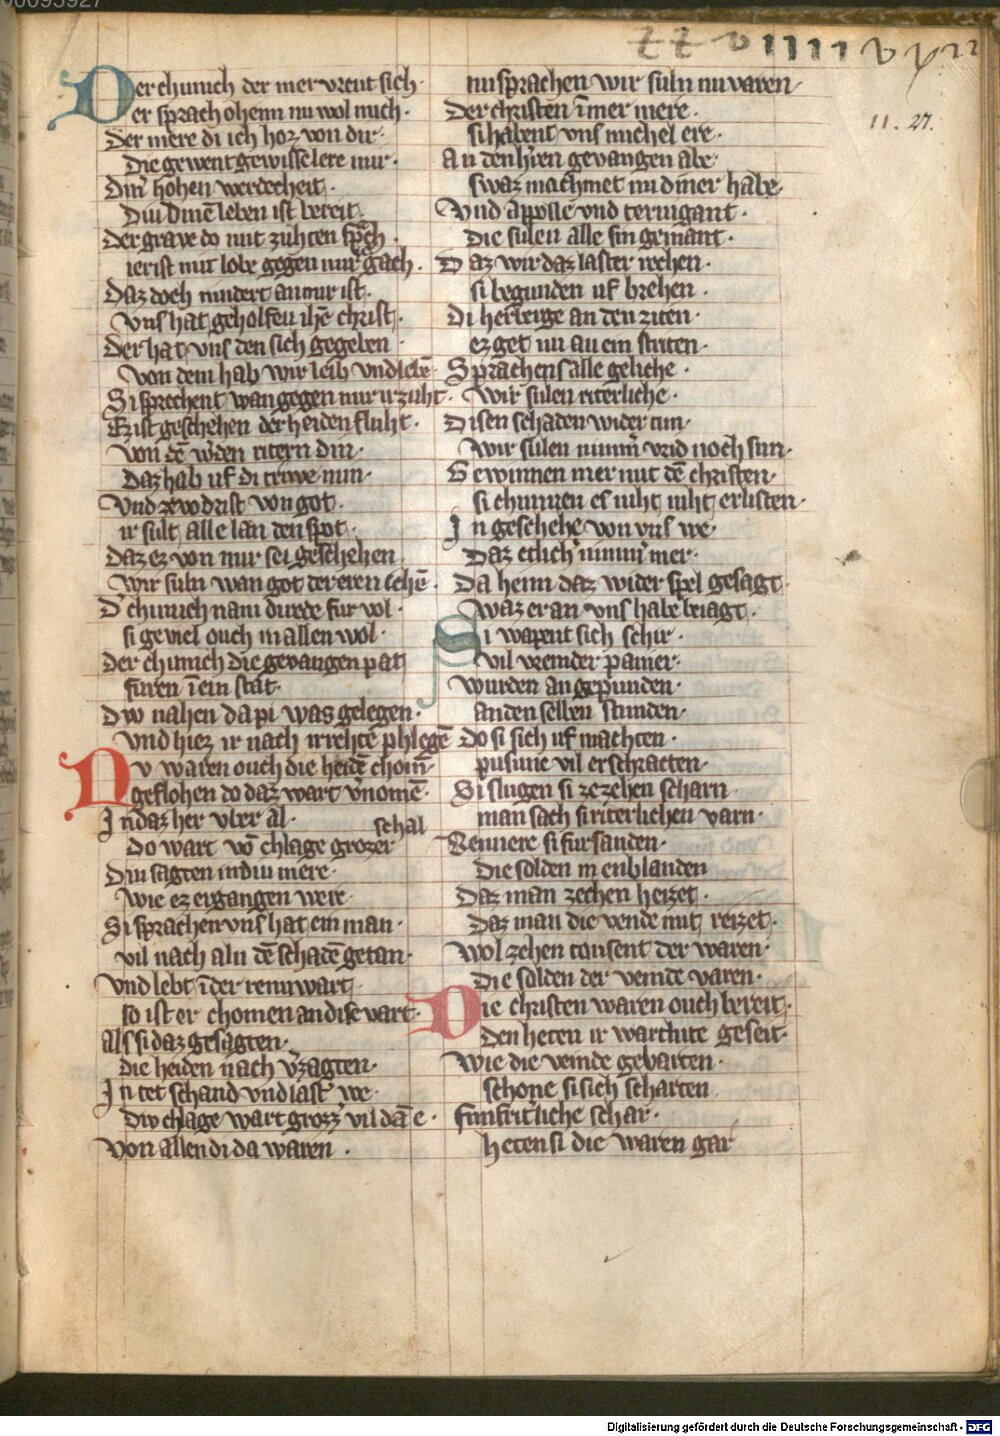 Der chunich der mer vreut sich·
er sprach ohenn nu wol mich·
Der mere di ich hoꝛ von dir·
Die gewent gewisselere mir·
Din̄ hohen werdecheit·
Diu dinē leben ist bereit·
Der grave do mit zuhten spͣch·
ier ist mit lobe gegen mir gach·
Daz doch nindert an mir ist·
vns hat geholfen ihē christ·
Der hat vns den sich gegeben·
von dem hab wir leib vnd lebē·
Si sprechent wan gegen mir ir zuht·
Ez ist geschehen der heiden fluht·
von dē w̓den ritern din·
daz hab uf di triwe min·
Vnd zewodrist von got·
ir sult alle lan den spot·
daz ez von mir sei geschehen·
wir suln wan got der eren iehē·
D̓ chunich nam durde fur vol·
si geviel ouch in allen wol·
Der chunich die gevangen pat
furen ī ein stat·
Dw nahen da pi was gelegen·
vnd hiez ir nach ir rehtē phlegē
Nv waren ouch die heidē chom̄·
geflohen do daz wart v̓nomē·
In daz her vber al·
schal
do wart vō chlage grozer
Diu sagten in diu mere·
wie ez ergangen were·
Si sprachen vns hat ein man·
vil nach aln dē schadē getan·
vnd lebt ī der rennwart
so ist er chomen an dise vart·
Als si daz gesagten·
die heiden nach v̓zagten·
In tet schand vnd last̓ we·
Diw chlage wart grozz̓ vil dāe·
Von allen di da waren·
nu sprachen wir suln nu varen·
Der christen īmer mere·
si habent vns michel ere·
An den h̓ren gevangen abe·
swaz machmet nu diner habe·
Vnd appolle vnd teruigant·
die sulen alle sin gemant·
Daz wir daz laster rechen·
si begunden uf brehen·
Di herberge an den ziten·
ez get nu an ein striten·
Sprachens alle geliche·
wir sulen riterliche·
Disen schaden wider tun·
wir sulen nimm̄ vrid noch sun·
Gewinnen mer mit dē christen·
si chunnen es niht niht erlisten·
In geschehe von vns we·
daz etlich̓ nimm̓ mer·
Da heim daz wider spel gesagt·
waz er an vns habe beiagt·
Si wapent sich schir·
vil vremder panier·
wurden an gepunden·
an den selben stunden·
do si sich uf machten·
pusune vil erschracten·
Si slugen si ze zehen scharn·
man sach si riterlichen varn·
Vennere si fur sanden·
die solden in enblanden
Daz man zechen heizet·
daz man die vende mit reizet·
wol zehen tousent der waren·
die solden der veinde varen·
Die christen waren ouch bereit·
den heten ir warthite geseit·
wie die veinde gebarten·
schone si sich scharten
funf rit̓liche schar·
heten si die waren gar
11. 27.
Digitalisierung gefördert durch die Deutsche Forschungsgemeinschaft - DFG